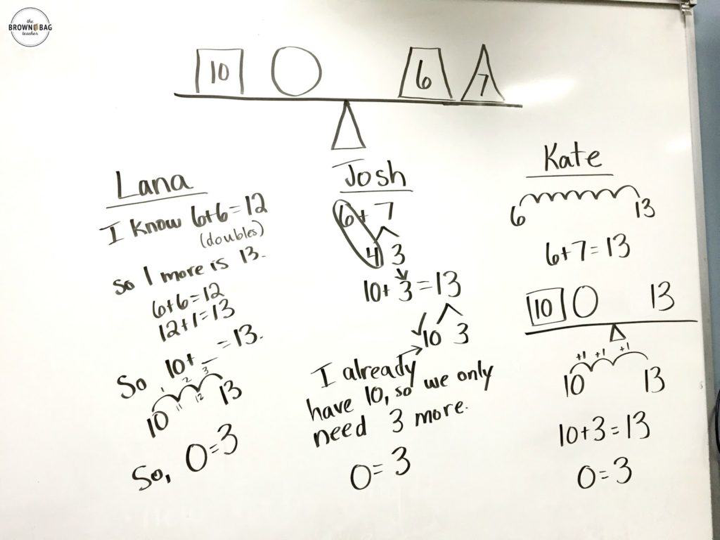 the
BROWN BAG
teacher
10 6 7
Lana
I know 6+6=12
(doubles)
So 1 more is 13.
6+6=12
12+1=13
So 10+_=13.
1 2 3
10 11 12 13
So, O=3
Josh
6+7
4 3
10+3=13
10 3
I already
have 10, so we only
need 3 more.
O=3
Kate
6 13
6+7=13
10 O 13
+1 +1 +1
10 13
10+3=13
O=3